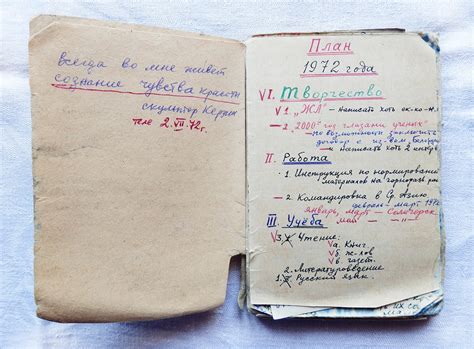 всегда во мне живет
сознание чувства красоты
скульптор
теле 2.VII.72г.
План
1972 года
VI. Творчество
V 1. „ЖЛ" – написать хоть
– 2. „2000й год глазами ученых"
– по возможности заключить
договор с из-вом
и написать хоть 2
II. Работа
1. Инструкция по нормированию
материалов на
– 2. Командировка в Ср. Азию
февраль-март 1972
январь, март – Солигорск
май
III. Учёба
V 3. Чтение:
Vа. книг
Vб. ж-лов
Vв. газет.
2. Литературоведение
1. Русский язык.